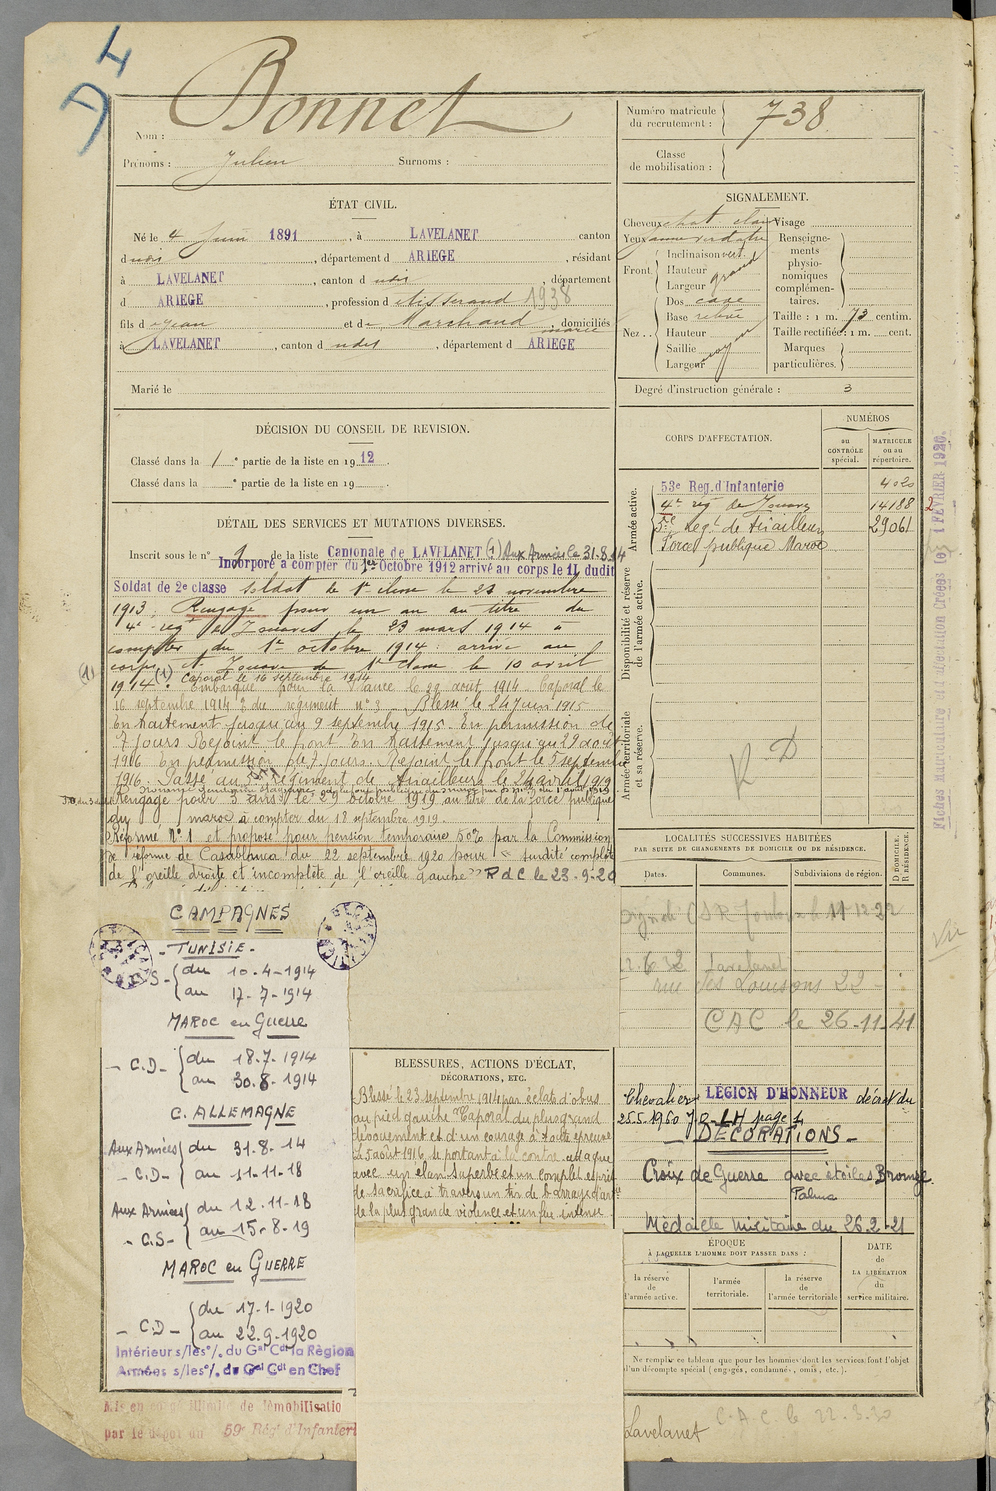 D4
Nom : Bonnet
Prénoms : Julien Surnoms :
Numéro matricule du recrutement : 738
Classe de mobilisation :
ÉTAT CIVIL.
Né le 4 Juin 1891, à LAVELANET canton
d udit, département d ARIEGE, résidant
à LAVELANET, canton d udit, département
d ARIEGE, profession de tisserand 1938
fils d e Jean et de Marchand domiciliés
à LAVELANET, canton d udit, département d ARIEGE
Marié le
SIGNALEMENT.
Cheveux chat. clair Visage
Yeux
Front. Inclinaison vert.
Hauteur
Largeur grand
Nez. Dos cave
Base relevée
Hauteur
Saillie
Largeur moyen
Renseignements physionomiques complémentaires.
Taille : 1 m. 73 centim.
Taille rectifiée : 1 m. cent.
Marques particulières.
Degré d'instruction générale : 3
DÉCISION DU CONSEIL DE REVISION.
Classé dans la 1e partie de la liste en 1912.
Classé dans la e partie de la liste en 19
CORPS D'AFFECTATION.
NUMÉROS
au CONTRÔLE spécial.
MATRICULE ou au répertoire.
Armée active.
53e Reg. d'Infanterie 4020
4e rég de Zouaves 14188 2
5e Regt de Tirailleurs 29061
Force publique Maroc
Disponibilité et réserve de l'armée active.
Armée territoriale et sa réserve.
R D
DÉTAIL DES SERVICES ET MUTATIONS DIVERSES.
Inscrit sous le n° 9 de la liste Cantonale de LAVELANET (1) Aux Armées le 31.8.14
Incorporé à compter du 1er Octobre 1912 arrivé au corps le 11 dudit
Soldat de 2e classe soldat de 1e classe le 23 novembre
1913. Rengagé pour un an au titre du
4e régt de Zouaves le 23 mars 1914 à
compter du 1er octobre 1914 : arrivé au
corps et Zouave de 1e classe le 10 avril
(1) Caporal le 16 septembre 1914
1914. Embarqué pour la France le 29 août 1914. Caporal le
16 septembre 1914 du régiment n°3. Blessé le 24 Juin 1915
En traitement jusqu'au 9 septembre 1915. En permission de
7 Jours Rejoint le front En traitement jusqu'au 29 août
1916 En permission de 7 jours. Rejoint le front le 5 septembre
1916. Passé au 5e Régiment de Tirailleurs le 24 avril 1919
Rengagé pour 3 ans le 29 octobre 1919 au titre de la Force publique
du Maroc à compter du 18 septembre 1919.
Réformé N°1 et proposé pour pension temporaire 50% par la Commission
de réforme de Casablanca du 22 septembre 1920 pour « surdité complète
de l'oreille droite et incomplète de l'oreille gauche » R d C le 23-9-20
LOCALITÉS SUCCESSIVES HABITÉES
PAR SUITE DE CHANGEMENTS DE DOMICILE OU DE RÉSIDENCE.
Dates. Communes. Subdivisions de région. D DOMICILE. R RÉSIDENCE.
CSR Toulouse le 11-12-22
22.6.32 Lavelanet
rue des Louisons 22
CAC le 26-11-41
CAMPAGNES
- TUNISIE -
CS- du 10-4-1914
au 17-7-1914
MAROC en Guerre
- C.D- du 18.7.1914
au 30.8.1914
C. ALLEMAGNE
Aux Armées du 31-8-14
- C.D- au 11-11-18
Aux Armées du 12.11-18
- C.S- au 15-8-19
MAROC en GUERRE
- C.D - du 17-1-1920
au 22.9.1920
Intérieur s/les o/. du Gal Cdt la Région
Armées s/les o/. du Gal Cdt en Chef
BLESSURES, ACTIONS D'ÉCLAT,
DÉCORATIONS, ETC.
Blessé le 23 septembre 1914 par éclats d'obus
au pied gauche "Caporal du plus grand
dévouement et d'un courage à toute épreuve
le 5 août 1916, se portant à la contre attaque
avec un élan superbe et un complet esprit
de sacrifice à travers un tir de barrage d'art
de la plus grande violence et un feu intense
Chevalier LÉGION D'HONNEUR décret du
25.5.1960 J.O-LH page 1
- DECORATIONS -
Croix de Guerre avec étoiles Bronze
Palme
Médaille Militaire du 26.2-21
ÉPOQUE
À LAQUELLE L'HOMME DOIT PASSER DANS :
la réserve de l'armée active.
l'armée territoriale.
la réserve de l'armée territoriale
DATE de LA LIBÉRATION du service militaire.
Ne remplir ce tableau que pour les hommes dont les services font l'objet
d'un décompte spécial (engagés, condamnés, omis, etc.).
Mis en congé illimité de démobilisatio
par le dépôt du 59e Régt d'Infanteri
Lavelanet C.A.C le 22.3.30